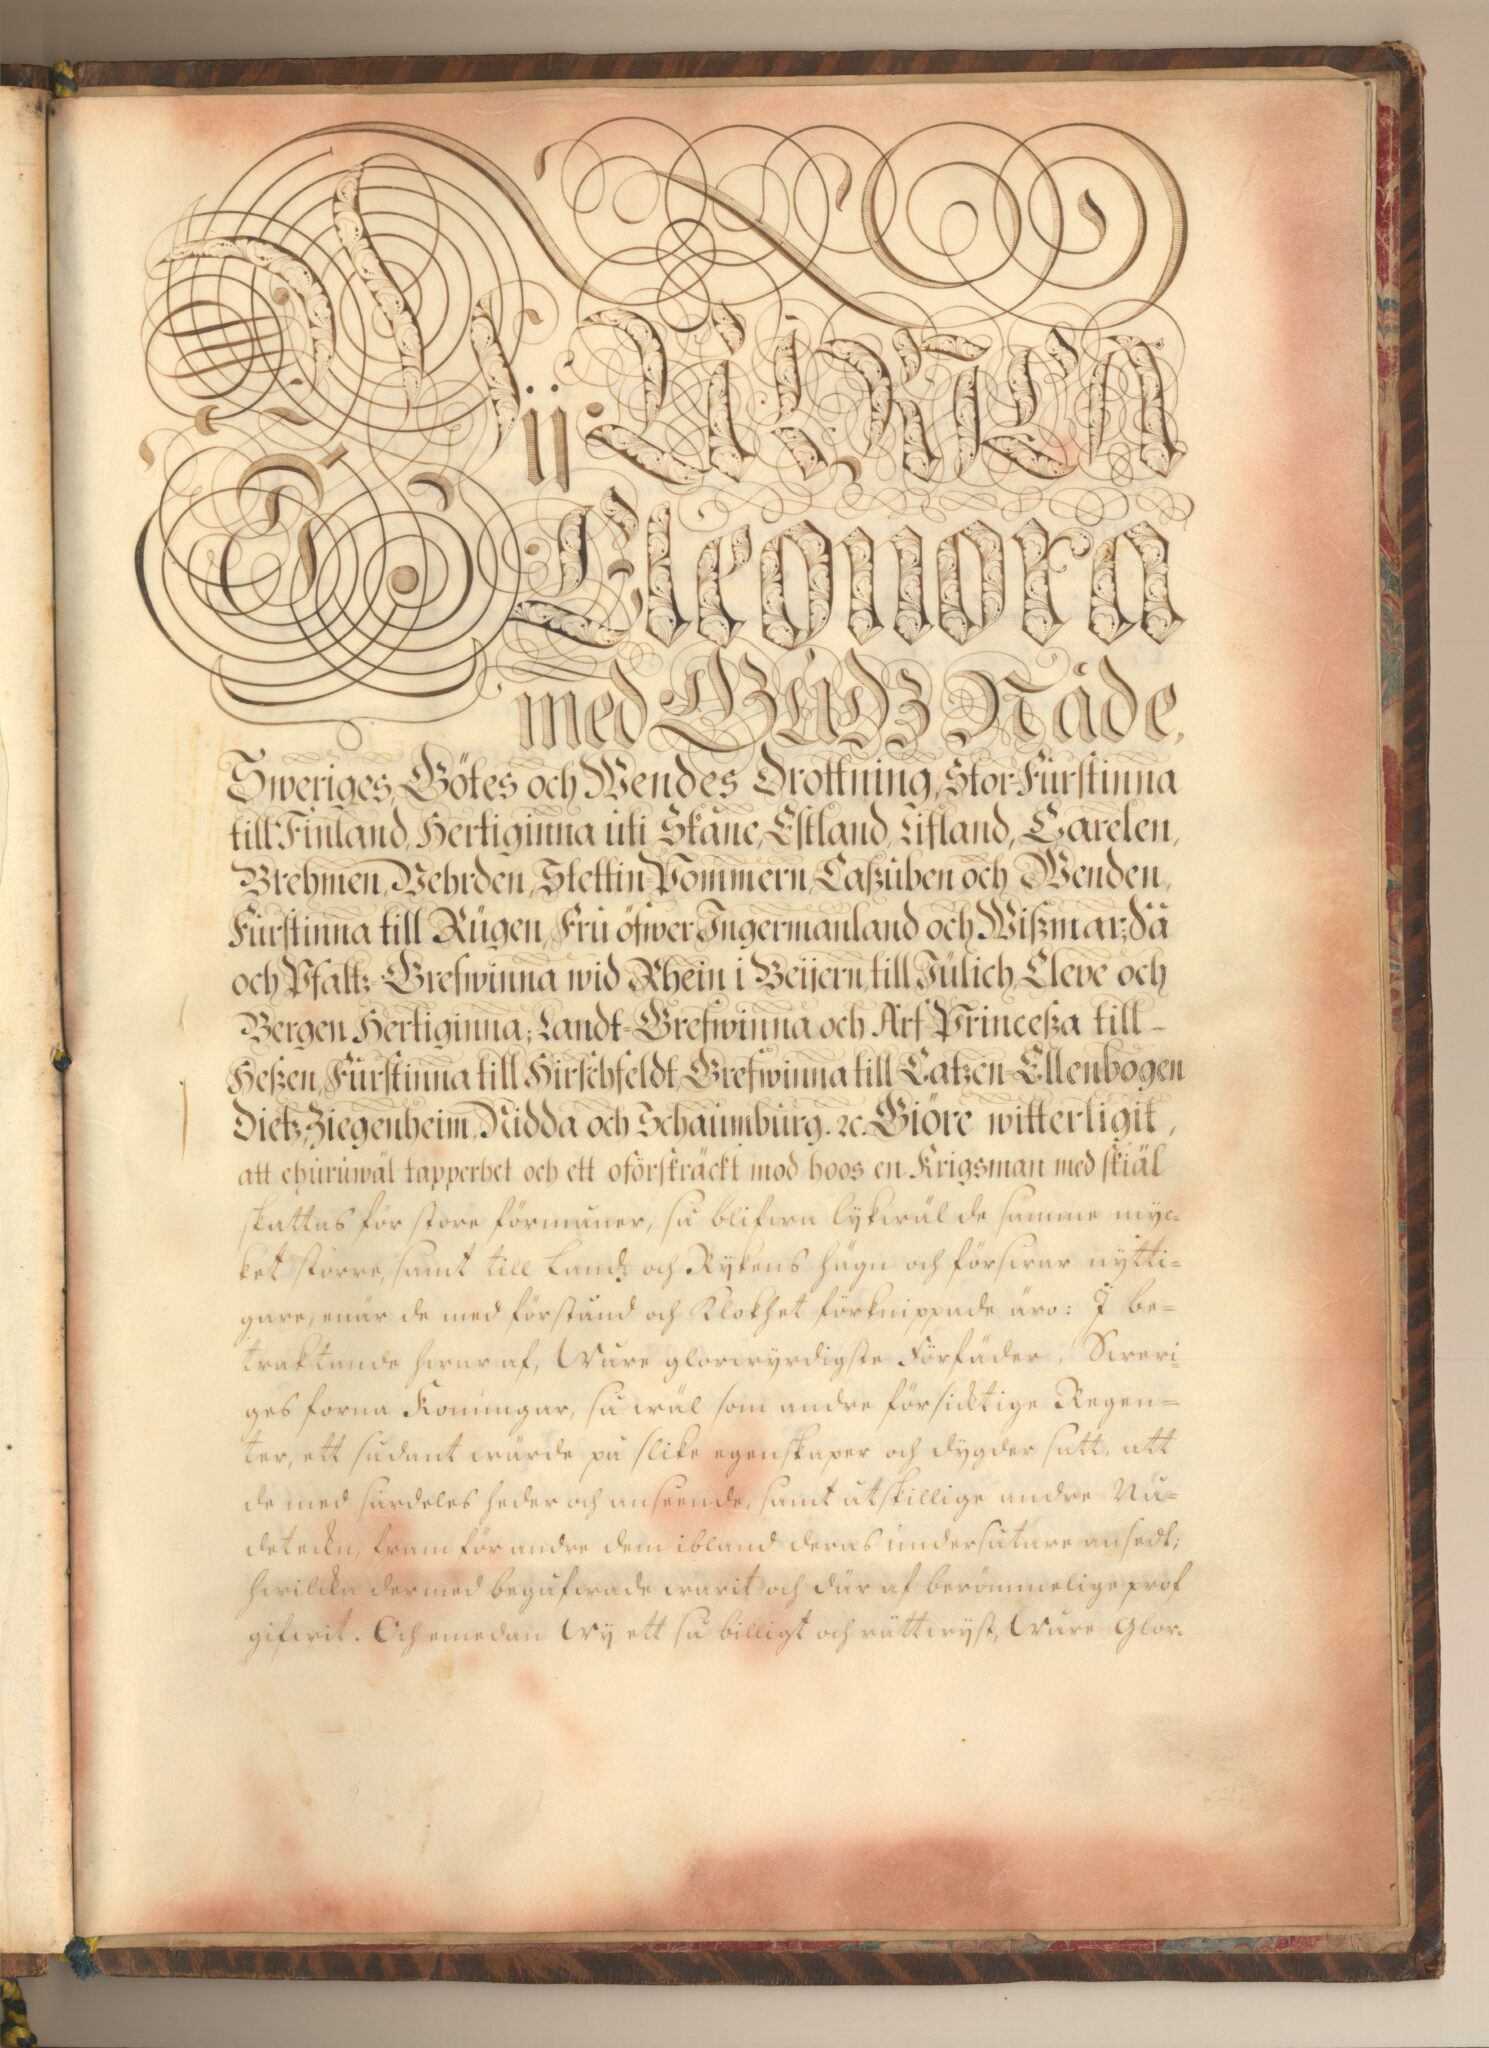 Wij Ulrica
Eleonora
med Gudz Nåde,
Sweriges, Götes och Wendes Drottning, Stor-Furstinna
till Finland, Hertiginna uti Skåne, Estland, Lifland, Carelen,
Brehmen, Vehrden, Stettin-Pommern, Caßuben och Wenden,
Furstinna till Rügen, Fru öfwer Ingermanland och Wißmar; Så
och Pfaltz-Grefwinna wid Rhein i Beijern, till Jülich, Cleve och
Bergen Hertiginna; Landt-Grefwinna och Arf-Princeßa till
Heßen, Furstinna till Hirschfeldt, Grefwinna till Catzen-Ellenbogen
Dietz, Ziegenheim, Nidda och Schaumburg. &c. Giöre witterligit,
att ehuruwäl tapperhet och ett oförskräckt mod hoos en Krigsman med skiäl
skattas för store förmåner, så blifwa lykwäl de samme myc-
ket större, samt till Landz och Rykens hägn och förswar nytti-
gare, enär de med förstånd och Klokhet förknippade äro: I be-
traktande hwar af, Wåre glorwyrdigste Förfäder, Sweri-
ges forna Konungar, så wäl som andre försicktige Regen-
ter, ett sådant wärde på slike egenskaper och dygder satt, att
de med särdeles heder och anseende, samt åtskillige andre Nå-
deteckn, fram för andre dem ibland deras undersåtare ansedt;
hwilcka dermed begåfwade warit och där af berömmelige prof
gifwit. Och emedan Wy ett så billigt och rättwyst, Wåre Glor-